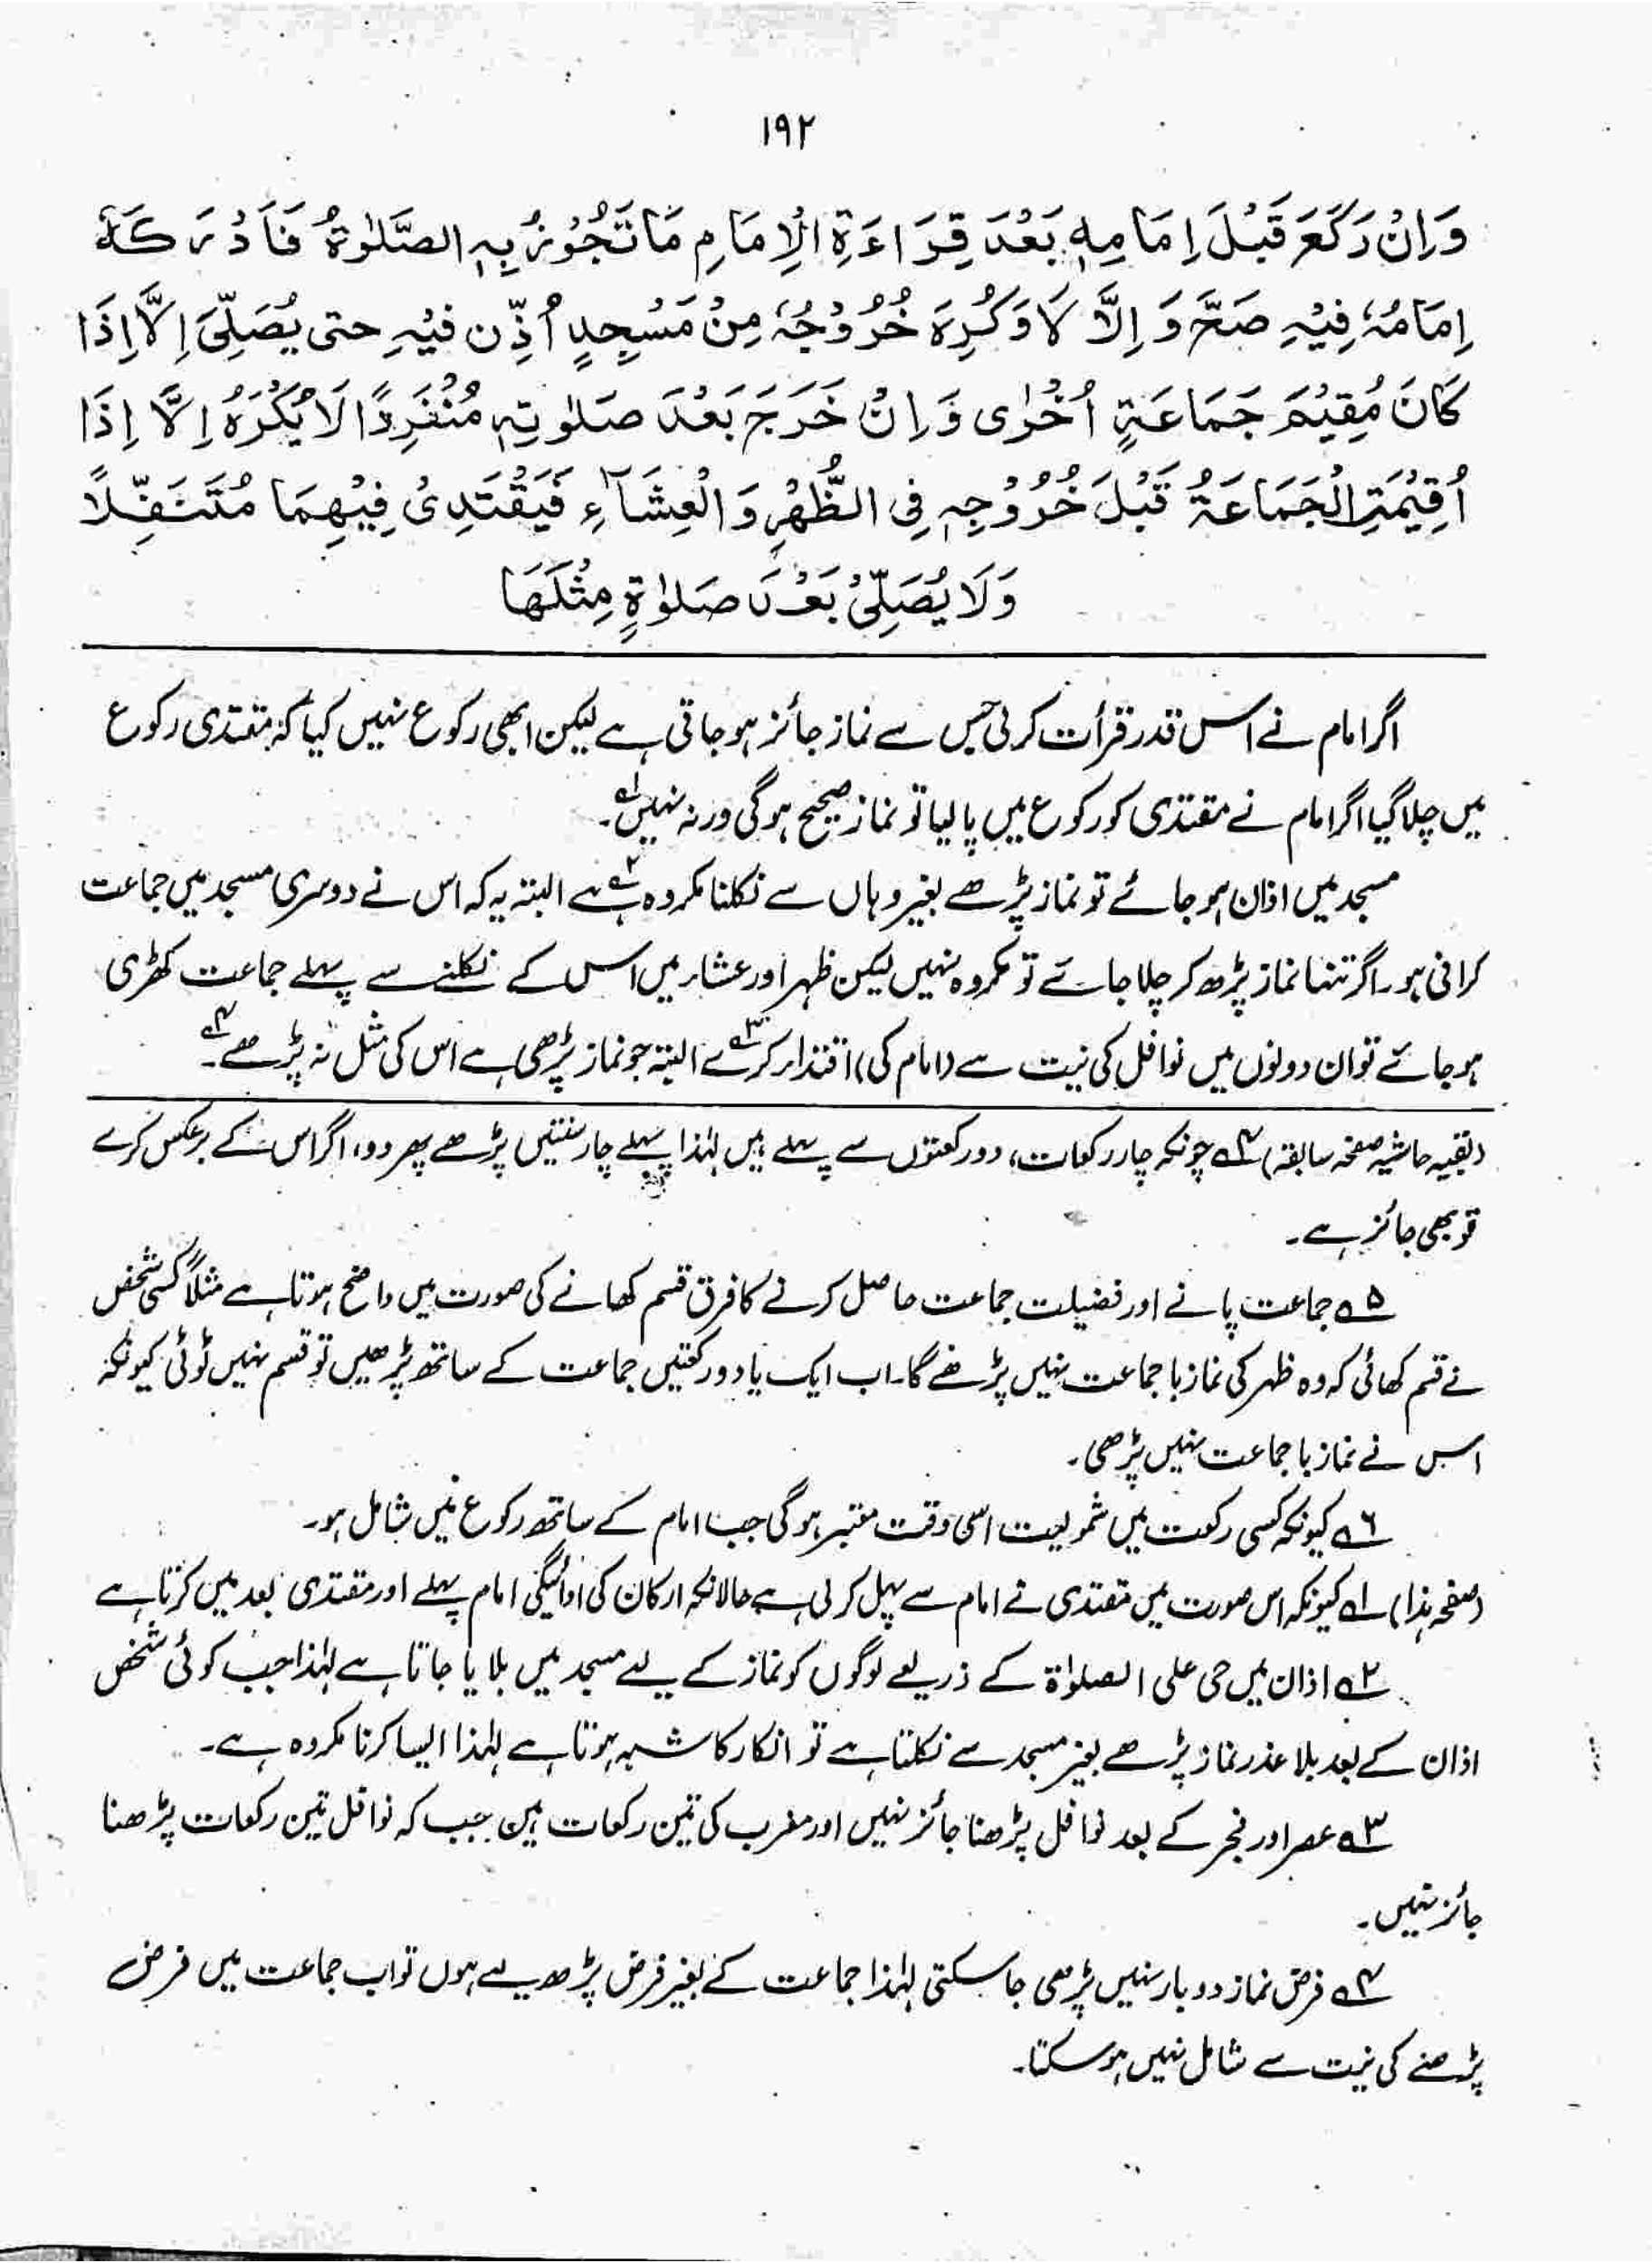 ۱۹۲
وَاِنْ رَكَعَ قَبْلَ اِمَامِهٖ بَعْدَ قِرَاءَةِ الْاِمَامِ مَا تَجُوْزُ بِهِ الصَّلٰوةُ فَاَدْرَكَهٗ
اِمَامُهٗ فِيْهِ صَحَّ وَ اِلَّا لَا وَكُرِهَ خُرُوْجُهٗ مِنْ مَسْجِدٍ اُذِّن فِيْهِ حتى يُصَلِّيَ اِلَّا اِذَا
كَانَ مُقِيْمَ جَمَاعَةٍ اُخْرٰى وَ اِنْ خَرَجَ بَعْدَ صَلٰوتِهٖ مُنْفَرِدًا لَا يُكْرَهُ اِلَّا اِذَا
اُقِيْمَتِ الْجَمَاعَةُ قَبْلَ خُرُوْجِهٖ فِى الظُّهْرِ وَ الْعِشَآءِ فَيَقْتَدِىْ فِيْهِمَا مُتَنَفِّلًا
وَلَا يُصَلِّىْ بَعْدَ صَلٰوةٍ مِثْلَهَا
اگر امام نے اس قدر قرأت کرلی جس سے نماز جائز ہو جاتی ہے لیکن ابھی رکوع نہیں کیا کہ مقتدی رکوع
میں چلا گیا اگر امام نے مقتدی کو رکوع میں پا لیا تو نماز صحیح ہوگی ورنہ نہیں۱؎۔
مسجد میں اذان ہو جائے تو نماز پڑھے بغیر وہاں سے نکلنا مکروہ ۲؎ ہے البتہ یہ کہ اس نے دوسری مسجد میں جماعت
کرانی ہو۔ اگر تنہا نماز پڑھ کر چلا جائے تو مکروہ نہیں لیکن ظہر اور عشاء میں اس کے نکلنے سے پہلے جماعت کھڑی
ہو جائے تو ان دونوں میں نوافل کی نیت سے (امام کی) اقتداء کرے۳؎ البتہ جو نماز پڑھی ہے اس کی مثل نہ پڑھے۴؎۔
(بقیہ حاشیہ صفحہ سابقہ) ۴؎ چونکہ چار رکعات، دو رکعتوں سے پہلے ہیں لہٰذا پہلے چار سنتیں پڑھے پھر دو، اگر اس کے برعکس کرے
تو بھی جائز ہے۔
۵؎ جماعت پانے اور فضیلت جماعت حاصل کرنے کا فرق قسم کھانے کی صورت میں واضح ہوتا ہے مثلاً کسی شخص
نے قسم کھائی کہ وہ ظہر کی نماز با جماعت نہیں پڑھے گا۔ اب ایک یا دو رکعتیں جماعت کے ساتھ پڑھیں تو قسم نہیں ٹوٹی کیونکہ
اس نے نماز با جماعت نہیں پڑھی۔
۶؎ کیونکہ کسی رکعت میں شمولیت اسی وقت معتبر ہوگی جب امام کے ساتھ رکوع میں شامل ہو۔
(صفحہ ہذا) ۱؎ کیونکہ اس صورت میں مقتدی نے امام سے پہل کرلی ہے حالانکہ ارکان کی ادائیگی امام پہلے اور مقتدی بعد میں کرتا ہے
۲؎ اذان میں حی علی الصلوٰۃ کے ذریعے لوگوں کو نماز کے لیے مسجد میں بلایا جاتا ہے لہٰذا جب کوئی شخص
اذان کے بعد بلا عذر نماز پڑھے بغیر مسجد سے نکلتا ہے تو انکار کا شبہ ہوتا ہے لہٰذا ایسا کرنا مکروہ ہے۔
۳؎ عصر اور فجر کے بعد نوافل پڑھنا جائز نہیں اور مغرب کی تین رکعات ہیں جب کہ نوافل تین رکعات پڑھنا
جائز نہیں۔
۴؎ فرض نماز دو بار نہیں پڑھی جا سکتی لہٰذا جماعت کے بغیر فرض پڑھ لیے ہوں تو اب جماعت میں فرض
پڑھنے کی نیت سے شامل نہیں ہو سکتا۔